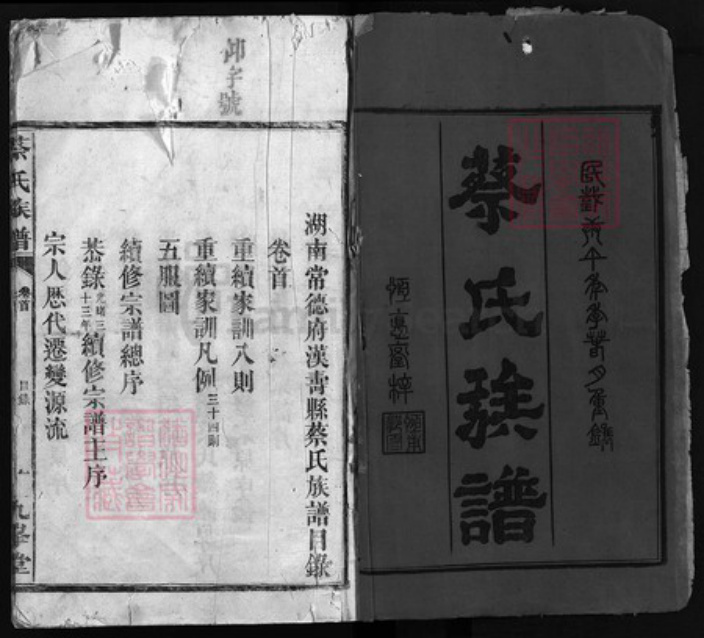 蔡氏族譜
卬字號
湖南常德府漢壽縣蔡氏族譜目錄
卷首
重續家訓八則
重續家訓凡例三十四則
五服圖
續修宗譜總序
恭錄光緒三十三年續修宗譜主序
宗人歷代遷變源流
蔡氏族譜
卷首
目錄
一
九峯堂